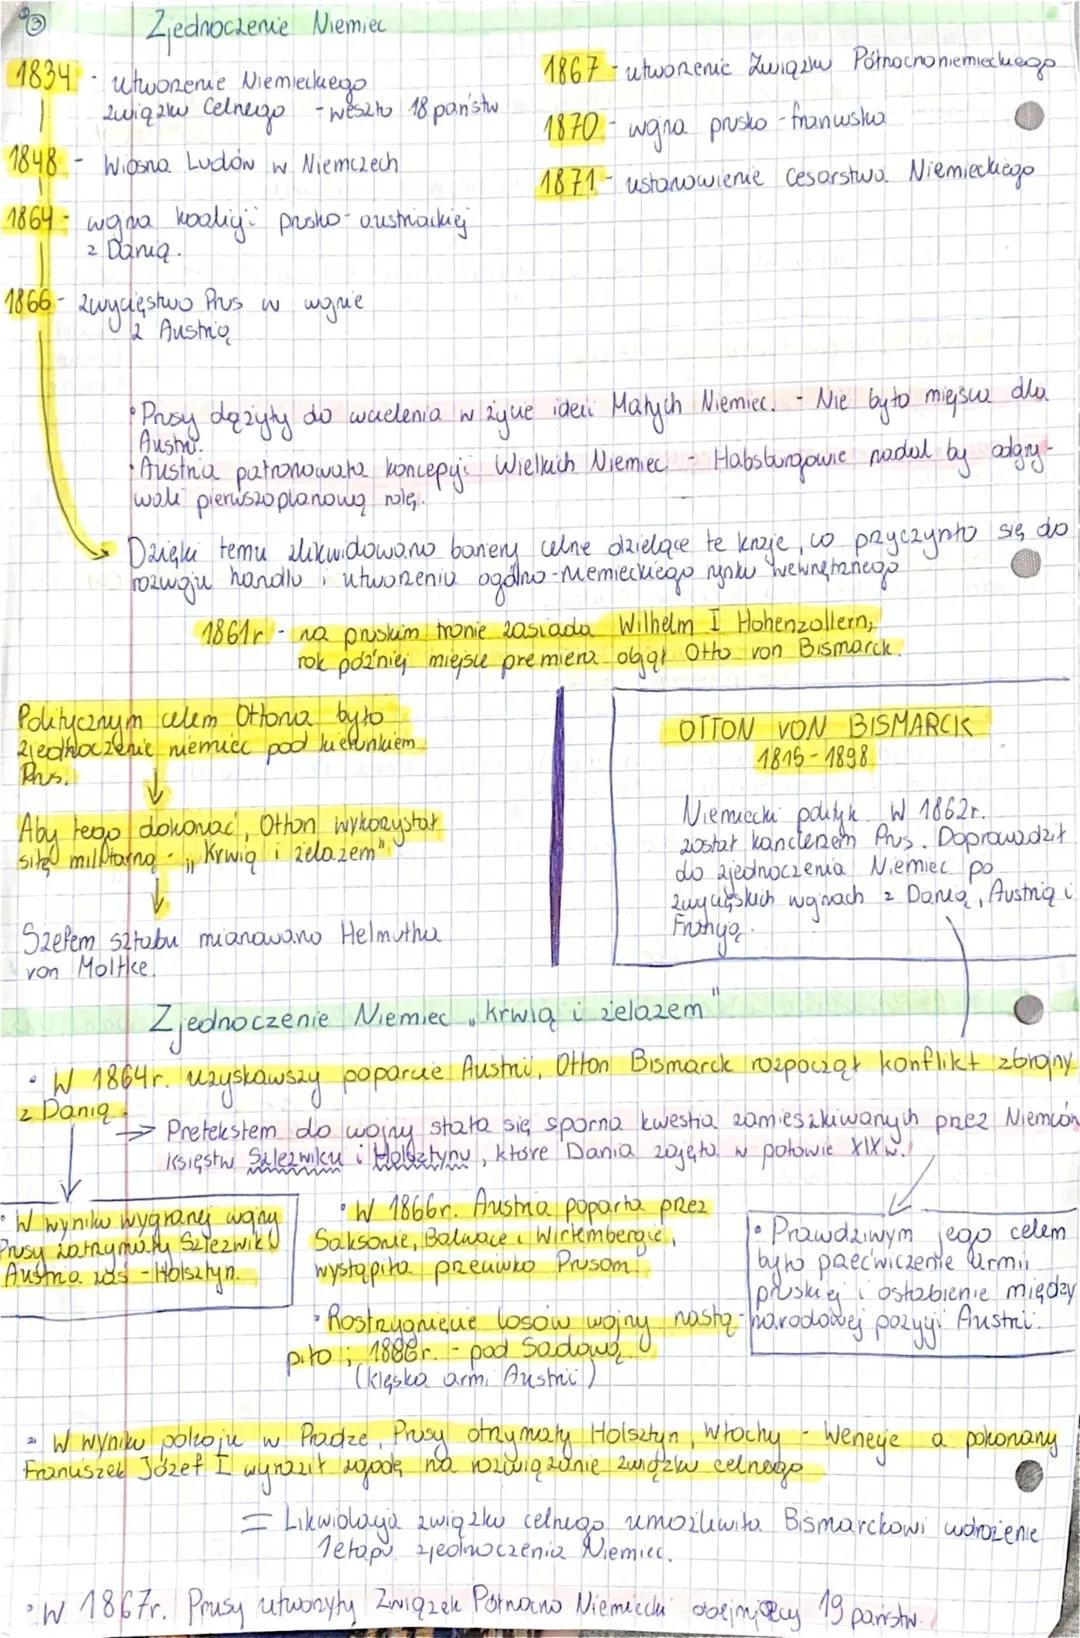 ③
Zjednoczenie Niemiec
1834 - utworzenie Niemieckiego
związku Celnego - weszło 18 państw
1848 - Wiosna Ludów w Niemczech
1864 - wojna koalicji prusko-austriackiej
z Danią.
1866 - zwycięstwo Prus w wojnie
z Austrią
1867 - utworzenie Związku Północnoniemieckiego
1870 - wojna prusko-francuska
1871 - ustanowienie Cesarstwa Niemieckiego
• Prusy dążyły do wcielenia w życie idei Małych Niemiec. - Nie było miejsca dla
Austrii.
• Austria patronowała koncepcji Wielkich Niemiec - Habsburgowie nadal by odgry-
wali pierwszoplanową rolę.
Dzięki temu zlikwidowano bariery celne dzielące te kraje, co przyczyniło się do
rozwoju handlu i utworzenia ogólno-niemieckiego rynku wewnętrznego
1861r - na pruskim tronie zasiada Wilhelm I Hohenzollern,
rok później miejsce premiera objął Otto von Bismarck.
Politycznym celem Ottona było
zjednoczenie niemiec pod kierunkiem
Prus.
Aby tego dokonać, Otton wykorzystał
siłę militarną - „Krwią i żelazem"
Szefem sztabu mianowano Helmutha
von Moltke.
OTTON VON BISMARCK
1815-1898
Niemiecki polityk. W 1862r.
został kanclerzem Prus. Doprowadził
do zjednoczenia Niemiec po
zwycięskich wojnach z Danią, Austrią i
Francją.
Zjednoczenie Niemiec „krwią i żelazem"
• W 1864r. uzyskawszy poparcie Austrii, Otton Bismarck rozpoczął konflikt zbrojny
z Danią.
→ Pretekstem do wojny stała się sporna kwestia zamieszkiwanych przez Niemców
księstw Szlezwiku i Holsztynu, które Dania zajęła w połowie XIX w.
• W wyniku wygranej wojny
Prusy zatrzymały Szlezwik
Austria zaś - Holsztyn.
• W 1866r. Austria poparta przez
Saksonie, Bawarie i Wirtembergie,
wystąpiła przeciwko Prusom.
• Prawdziwym jego celem
było przećwiczenie armii
pruskiej i osłabienie między
narodowej pozycji Austrii.
• Rostrzygnięcie losów wojny nastą-
piło; 1866r. - pod Sadową.
(klęska armi Austrii)
• W wyniku pokoju w Pradze, Prusy otrzymały Holsztyn, Włochy - Wenecje a pokonany
Franciszek Józef I wyraził zgodę na rozwiązanie związku celnego
= Likwidacja związku celnego umożliwiła Bismarckowi wdrożenie
1 etapu zjednoczenia Niemiec.
• W 1867r. Prusy utworzyły Związek Północno Niemiecki obejmujący 19 państw.